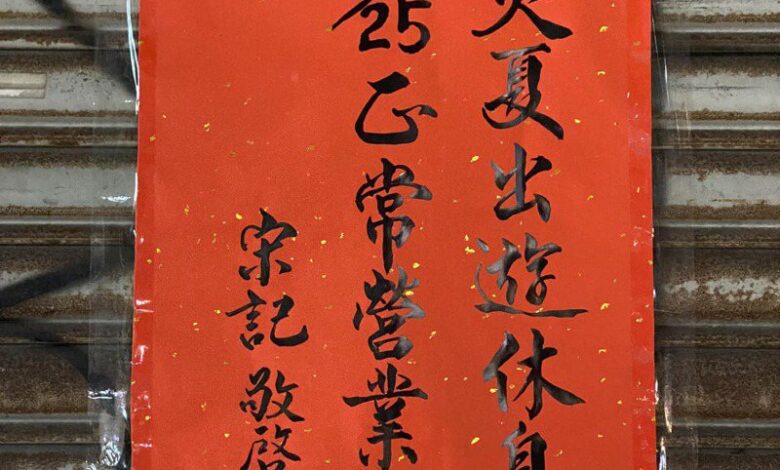 炎夏出遊休息
25正常營業
宋記敬啓